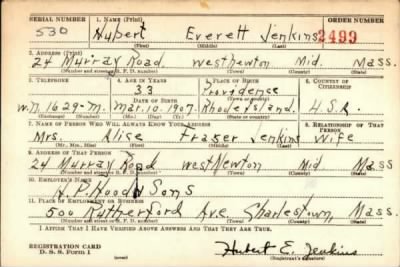 SERIAL NUMBER 1. NAME (Print) ORDER NUMBER
530 Hubert Everett Jenkins 2499
(First) (Middle) (Last)
2. ADDRESS (Print)
24 Murray Road. West Newton Mid. Mass.
(Number and street or R. F. D. number) (Town) (County) (State)
3. TELEPHONE 4. AGE IN YEARS 5. PLACE OF BIRTH 6. COUNTRY OF CITIZENSHIP
33 Providence
(Town or county)
DATE OF BIRTH
W.N. 1629-M. Mar. 10. 1907. Rhode Island. U.S.A.
(Exchange) (Number) (Mo.) (Day) (Yr.) (State or country)
7. NAME OF PERSON WHO WILL ALWAYS KNOW YOUR ADDRESS 8. RELATIONSHIP OF THAT PERSON
Mrs. Elise Fraser Jenkins Wife
(Mr., Mrs., Miss) (First) (Middle) (Last)
9. ADDRESS OF THAT PERSON
24 Murray Road West Newton Mid Mass
(Number and street or R. F. D. number) (Town) (County) (State)
10. EMPLOYER'S NAME
H. P. Hood & Sons
11. PLACE OF EMPLOYMENT OR BUSINESS
500 Rutherford Ave. Charlestown Mass.
(Number and street or R. F. D. number) (Town) (County) (State)
I AFFIRM THAT I HAVE VERIFIED ABOVE ANSWERS AND THAT THEY ARE TRUE.
REGISTRATION CARD
D. S. S. Form 1 Hubert E. Jenkins
(Registrant's signature)